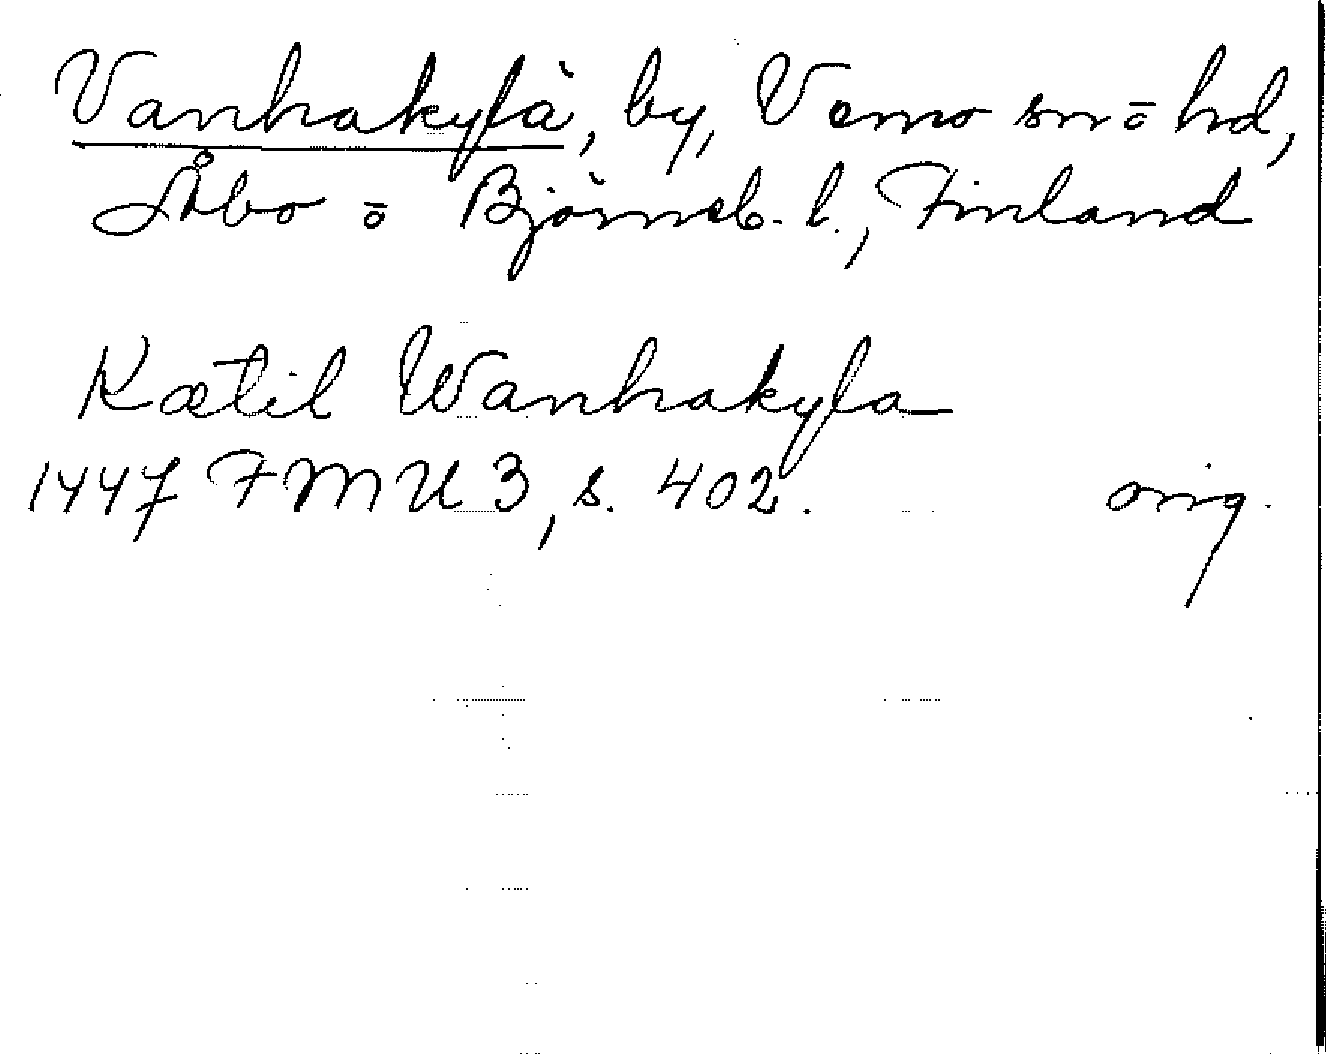 Vanhakylä, by, Vemo sn o hd,
Åbo o Björneb. l., Finland
Kætil Wanhakyla
1447 FMU 3, s. 402. orig.